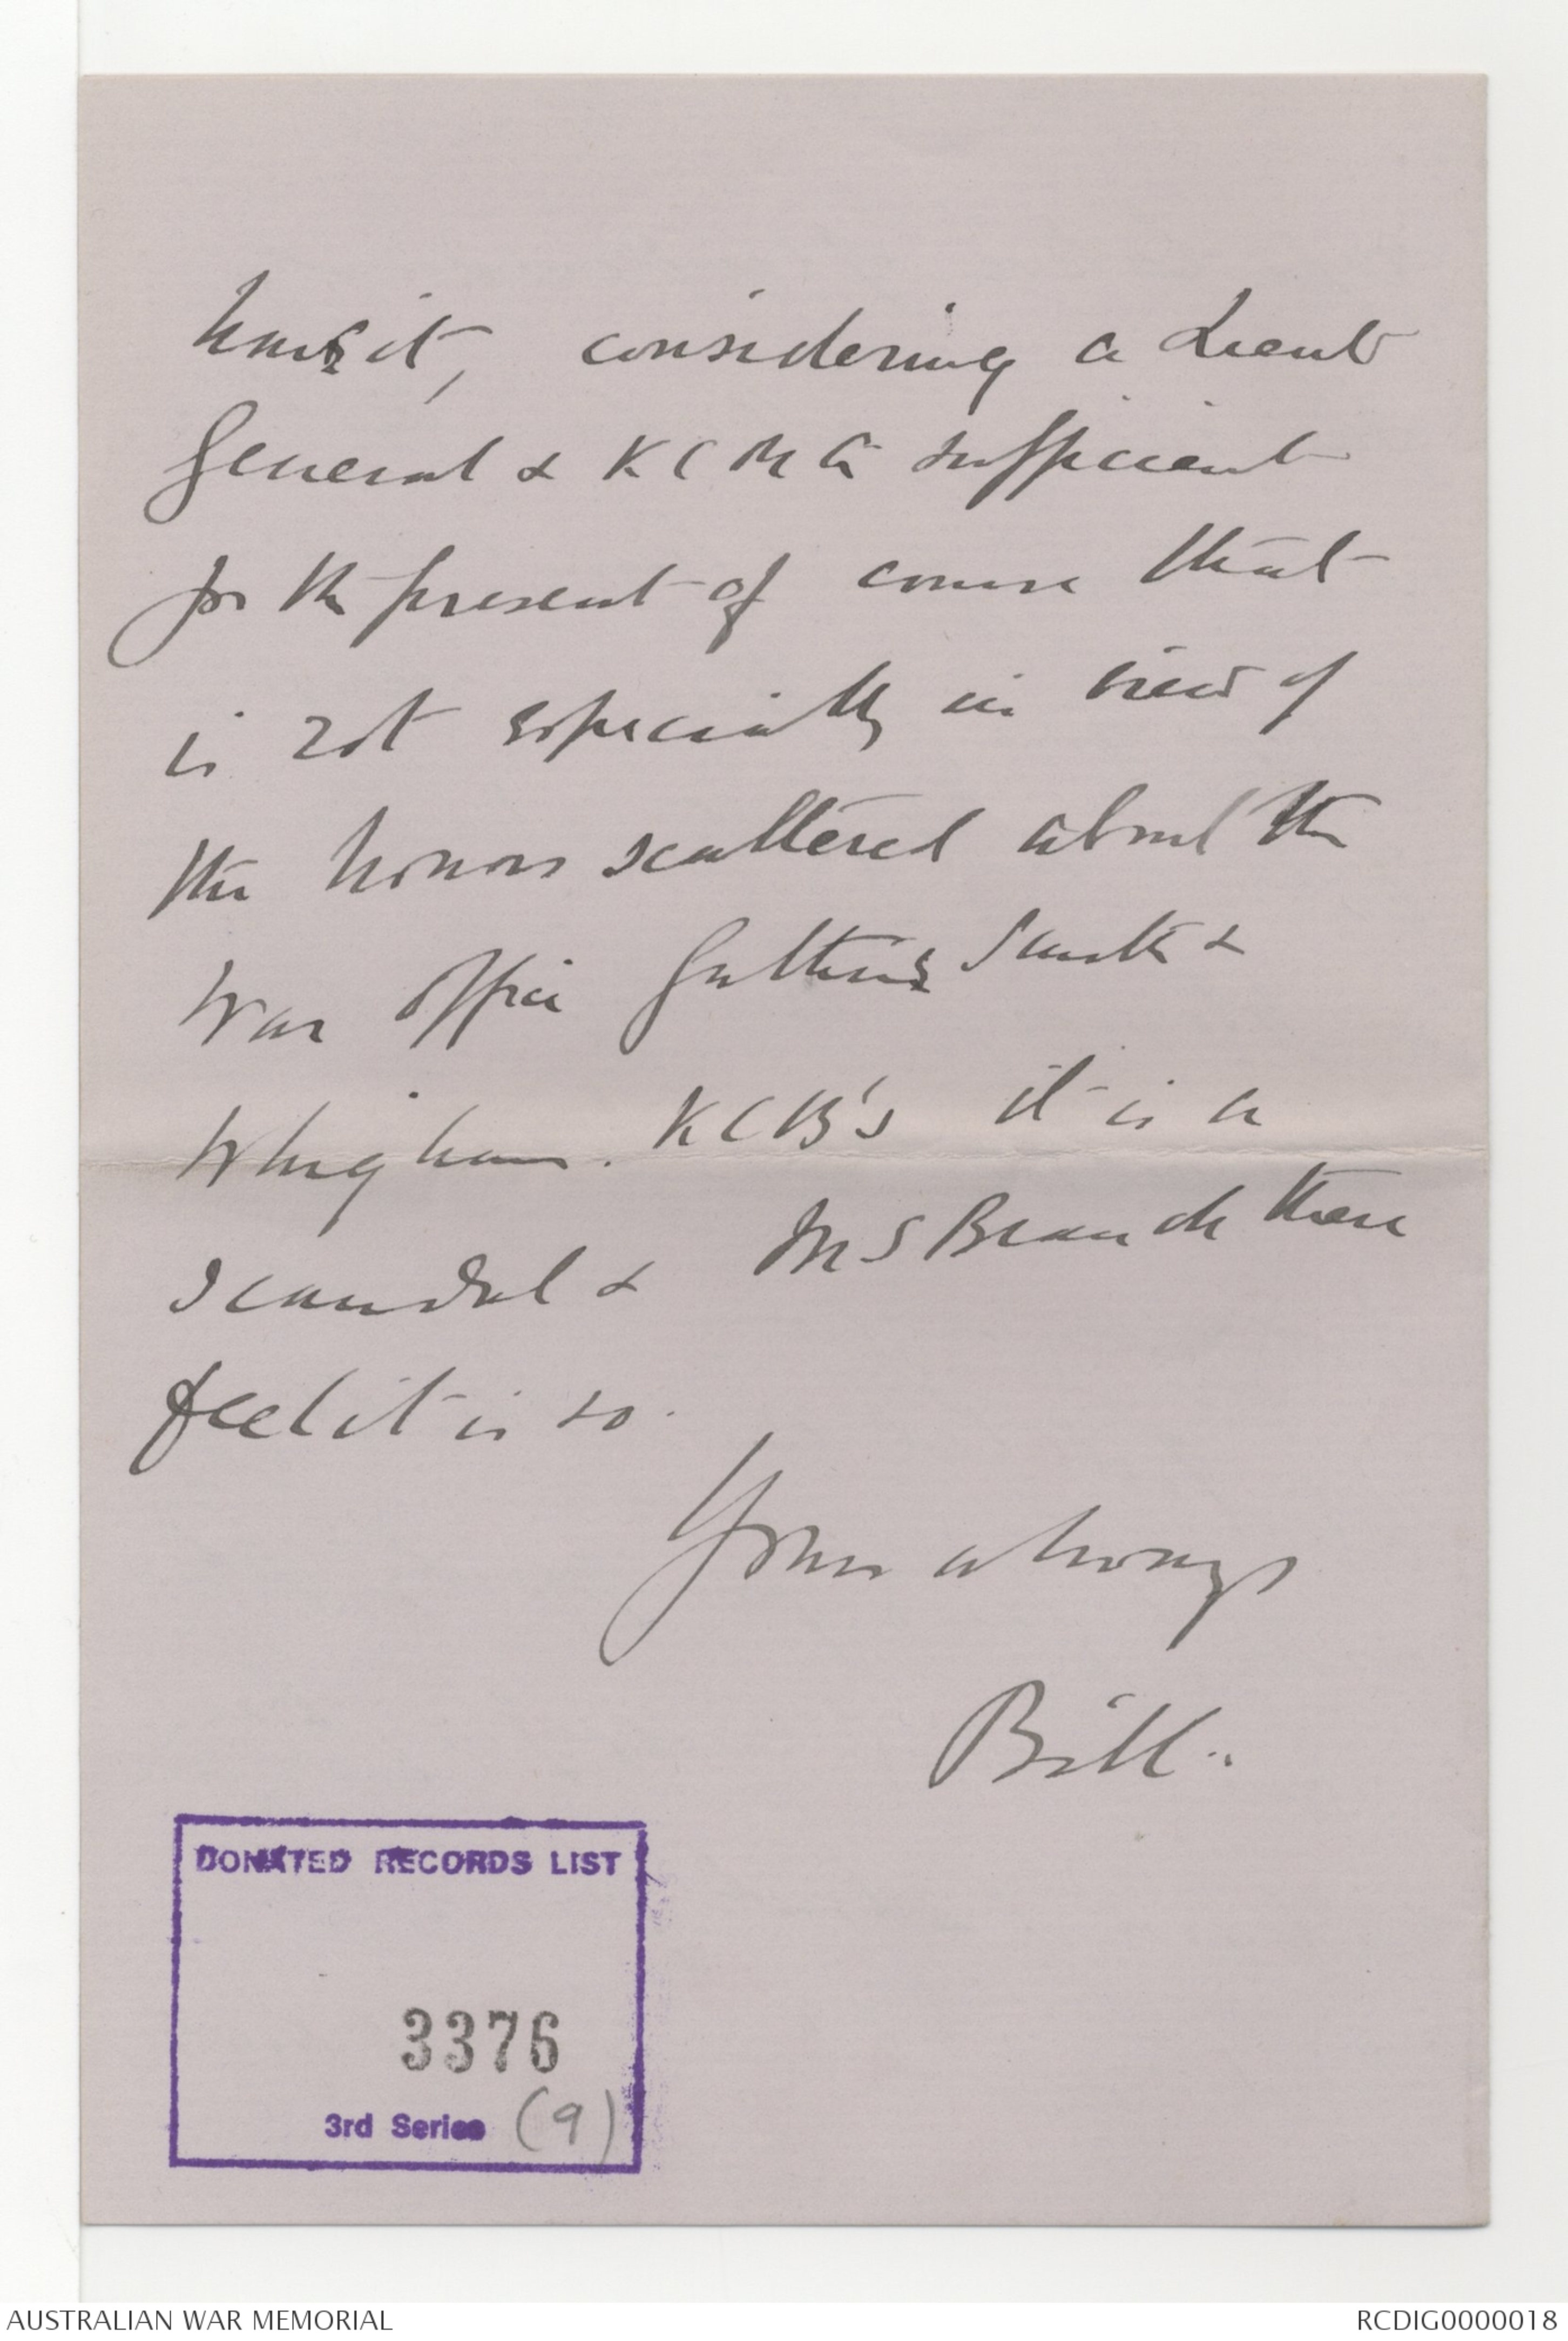 it, considering a Lieut
General & KCMG sufficient
for the present of course that
is rot especially in view of
the honors scattered about the
War Office
Whigham. KCB's it is a
scandal & MS Branch there
feel it is so.
Yours always
Bill.
DONATED RECORDS LIST
3376
3rd Series (9)
AUSTRALIAN WAR MEMORIAL
RCDIG0000018